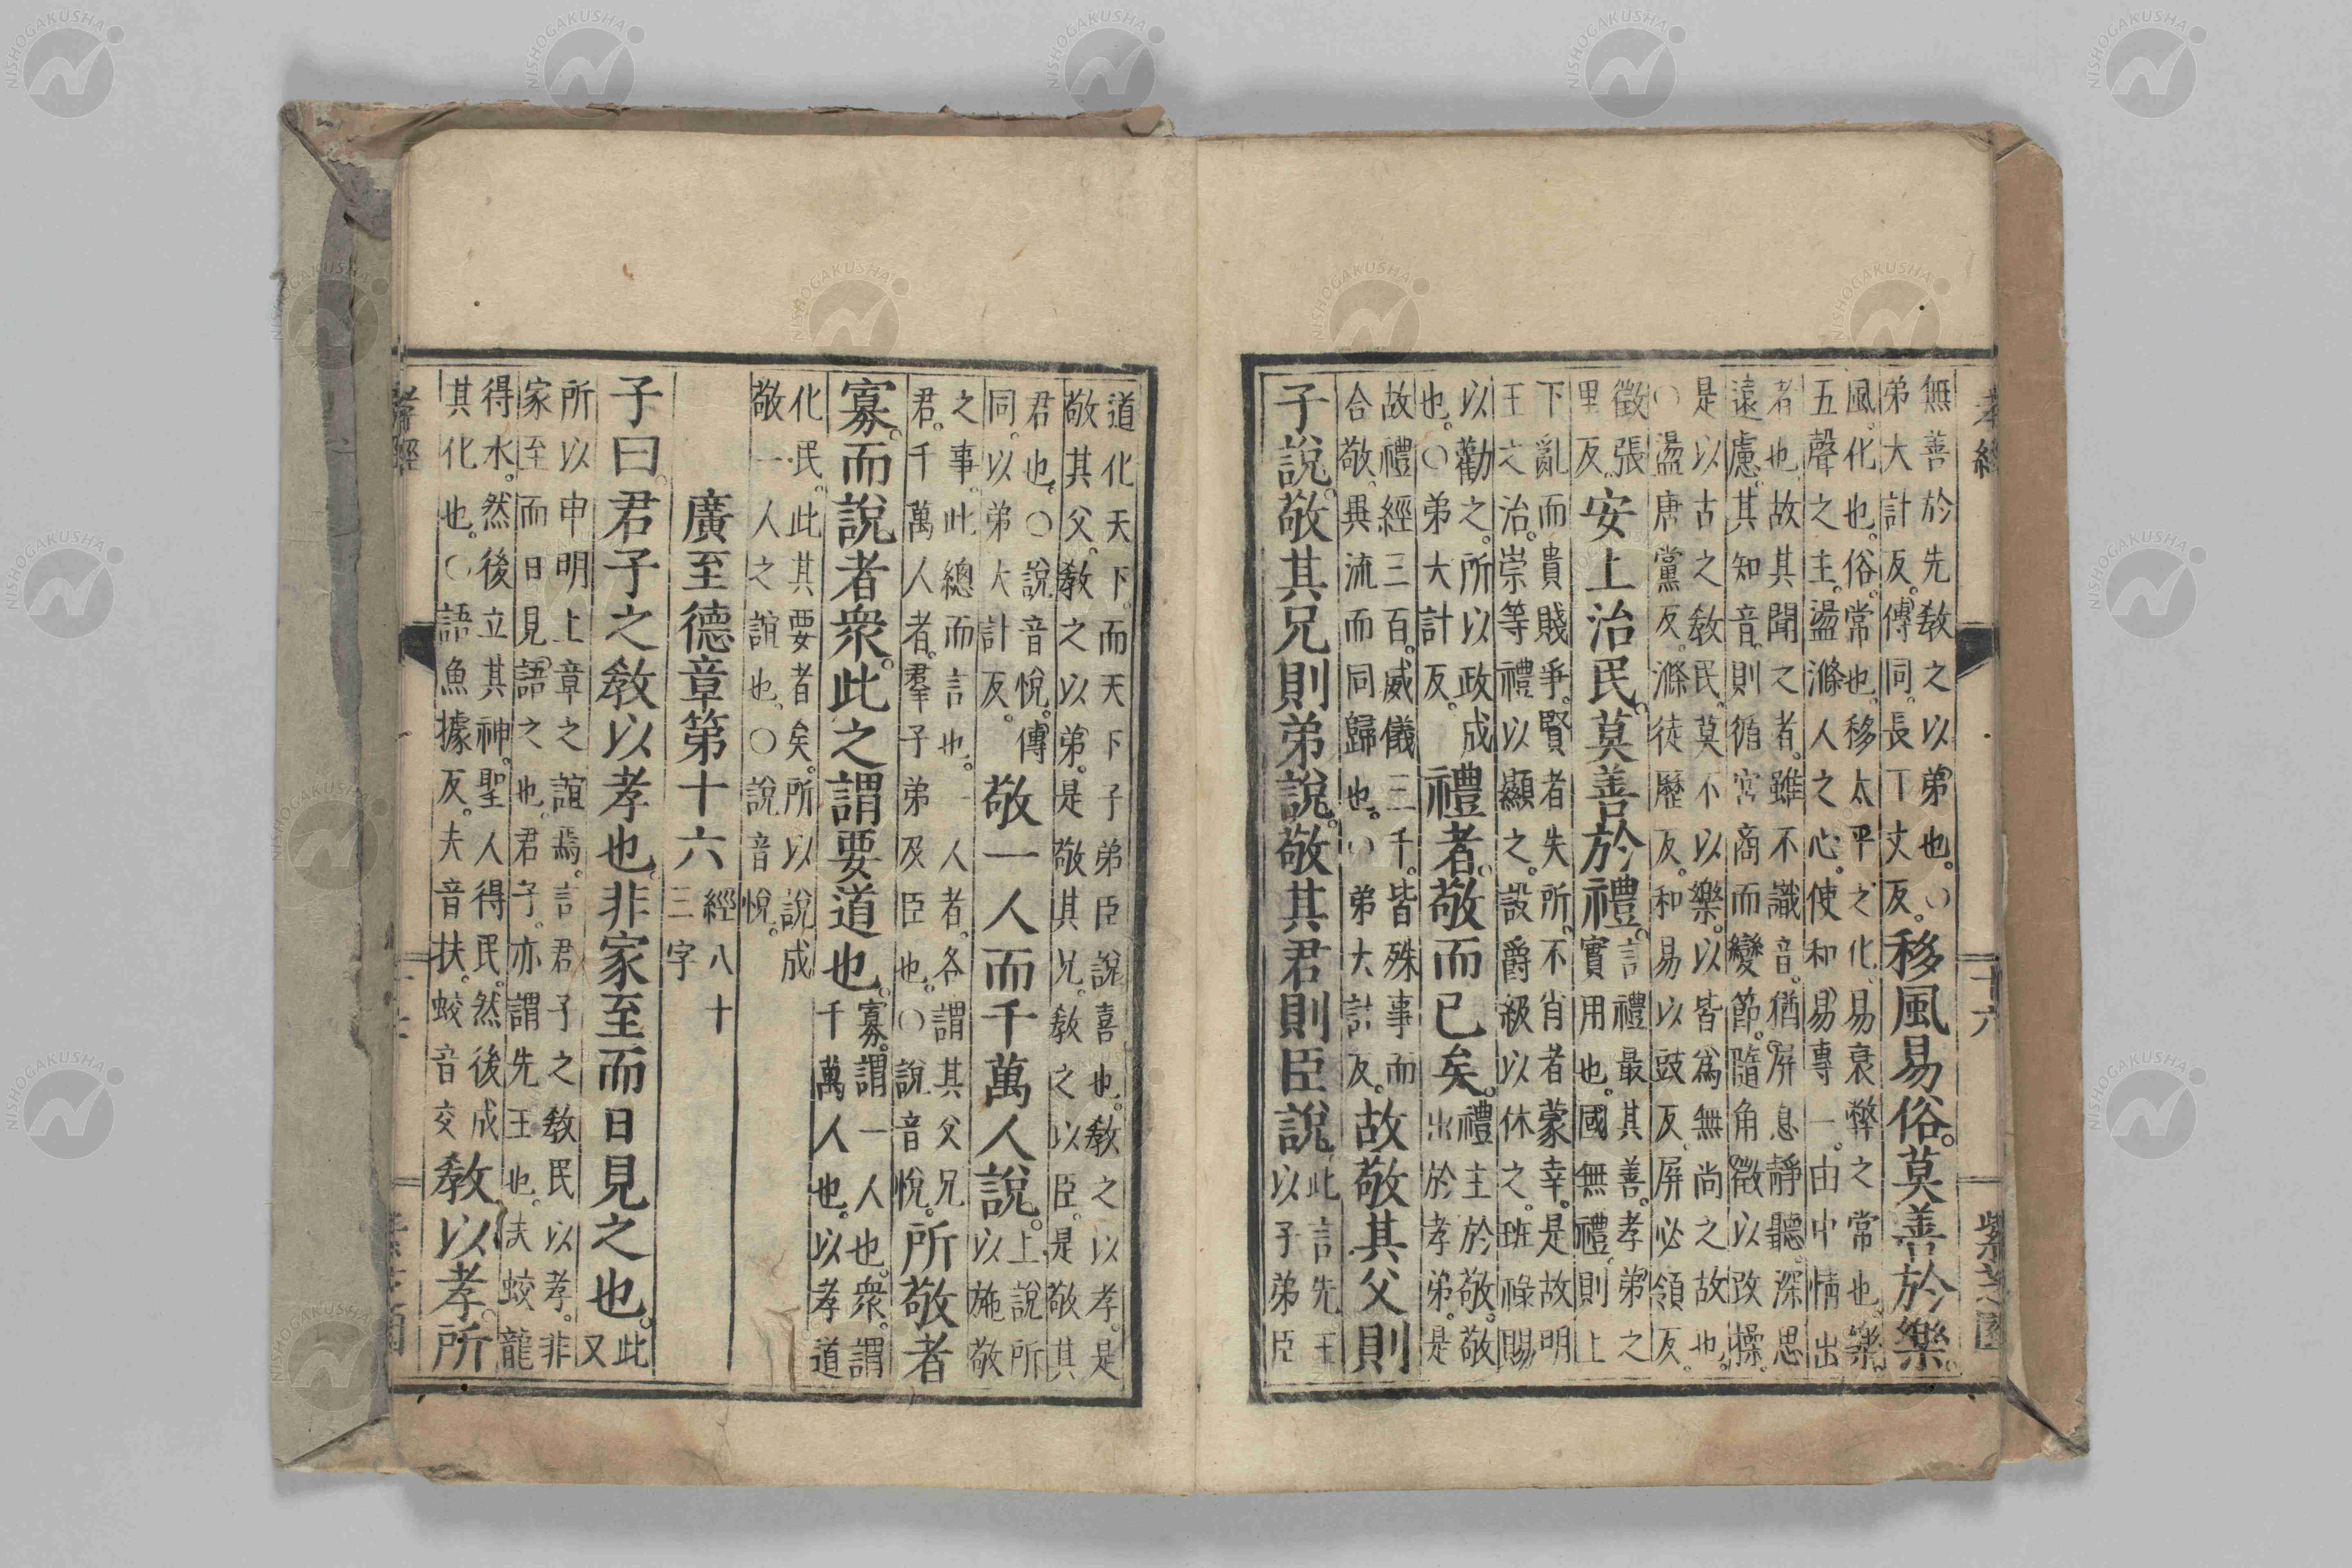 孝經
十六
紫芝園
無善於先敎之以弟也。○
弟大計反。傳同。長丁丈反。
移風易俗。莫善於樂。
風。化也。俗。常也。移太平之化。易衰弊之常也。樂。
五聲之主。盪滌人之心。使和易專一。由中情出
者也。故其聞之者。雖不識音。猶屏息靜聽。深思
遠慮。其知音。則循宮商而變節。隨角徵以改操。
是以古之敎民。莫不以樂。以皆爲無尚之故也。
○盪唐黨反。滌徒歷反。和易以豉反。屏必領反。
徵張
里反。
安上治民。莫善於禮。
言禮最其善。孝弟之
實用也。國無禮。則上
下亂而貴賤爭。賢者失所。不肖者蒙幸。是故明
王之治。崇等禮以顯之。設爵級以休之。班祿賜
以勸之。所以政成
也。○弟大計反。
禮者。敬而已矣。
禮主於敬。敬
出於孝弟。是
故禮經三百。威儀三千。皆殊事而
合敬。異流而同歸也。○弟大計反。
故敬其父則
子說。敬其兄則弟說。敬其君則臣說。
此言先王
以子弟臣
道化天下。而天下子弟臣說喜也。敎之以孝。是
敬其父。敎之以弟。是敬其兄。敎之以臣。是敬其
君也。○說音悅。傳
同。以弟大計反。
敬一人而千萬人說。
上說所
以施敬
之事。此總而言也。一人者。各謂其父兄
君。千萬人者。羣子弟及臣也。○說音悅。
所敬者
寡。而說者衆。此之謂要道也。
寡。謂一人也。衆。謂
千萬人也。以孝道
化民。此其要者矣。所以說成
敬一人之誼也。○說音悅。
廣至德章第十六
經八十
三字
子曰。君子之敎以孝也。非家至而日見之也。
此
又
所以申明上章之誼焉。言君子之敎民以孝。非
家至而日見語之也。君子。亦謂先王也。夫蛟龍
得水。然後立其神。聖人得民。然後成
其化也。○語魚據反。夫音扶。蛟音交
敎以孝。所
孝經